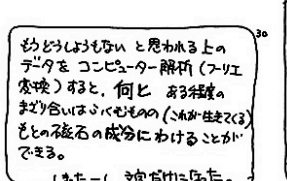 30
もうどうしようもない と思われる上の
データを コンピューター解析 (フーリエ
変換) すると、何と ある程度の
まざり合いはふくむものの (これが生きてくる)
もとの磁石の成分にわけることが
できる。